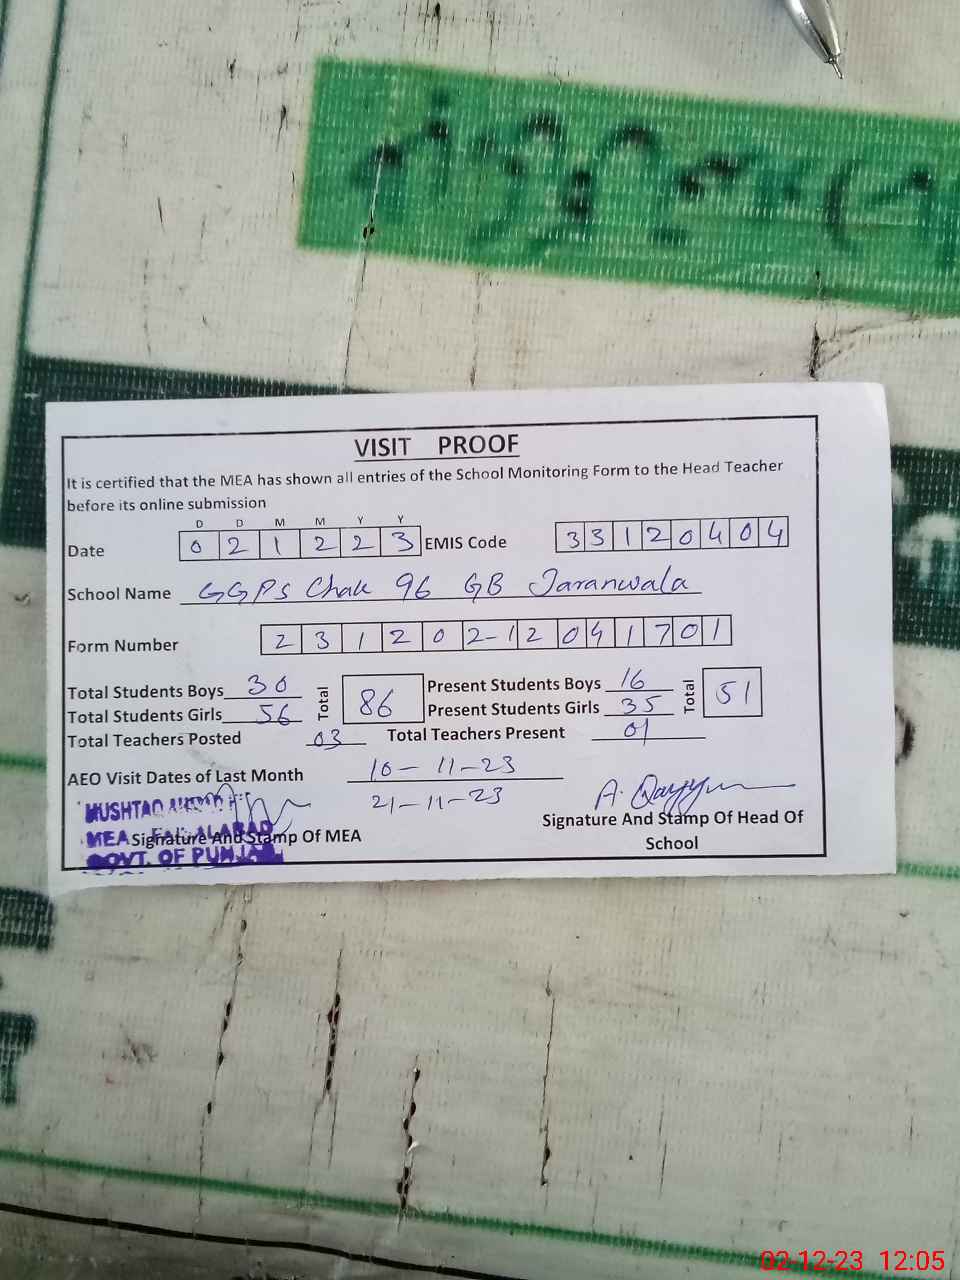 VISIT PROOF
It is certified that the MEA has shown all entries of the School Monitoring Form to the Head Teacher
before its online submission
D D M M Y Y
Date 0 2 1 2 2 3 EMIS Code 3 3 1 2 0 4 0 4
School Name GGPS Chak 96 GB Jaranwala
Form Number 2 3 1 2 0 2-1 2 0 4 1 7 0 1
Total Students Boys 30 Total 86 Present Students Boys 16 Total 51
Total Students Girls 56 Present Students Girls 35
Total Teachers Posted 03 Total Teachers Present 01
AEO Visit Dates of Last Month 10-11-23
21-11-23
MUSHTAQ
A. Qayyum
MEA
Signature And Stamp Of MEA
GOVT. OF PUNJAB
Signature And Stamp Of Head Of
School
02-12-23 12:05